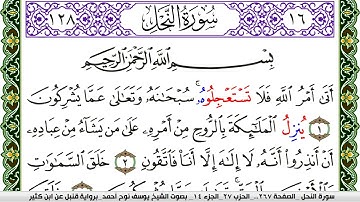 ١٦ سُورَةُ النَّحْلِ ١٢٨
بِسْمِ اللَّهِ الرَّحْمَٰنِ الرَّحِيمِ
أَتَىٰ أَمْرُ اللَّهِ فَلَا تَسْتَعْجِلُوهُۥ سُبْحَٰنَهُۥ وَتَعَٰلَىٰ عَمَّا يُشْرِكُونَ
١ يُنزِلُ الْمَلَٰٓئِكَةَ بِالرُّوحِ مِنْ أَمْرِهِۦ عَلَىٰ مَن يَشَآءُ مِنْ عِبَادِهِۦ
أَنْ أَنذِرُوٓا أَنَّهُۥ لَآ إِلَٰهَ إِلَّآ أَنَا فَاتَّقُونِ ٢ خَلَقَ السَّمَٰوَٰتِ
سورة النحل الصفحة ٢٦٧.. الحزب ٢٧.. الجزء ١٤.. بصوت الشيخ يوسف نوح أحمد برواية قنبل عن ابن كثير